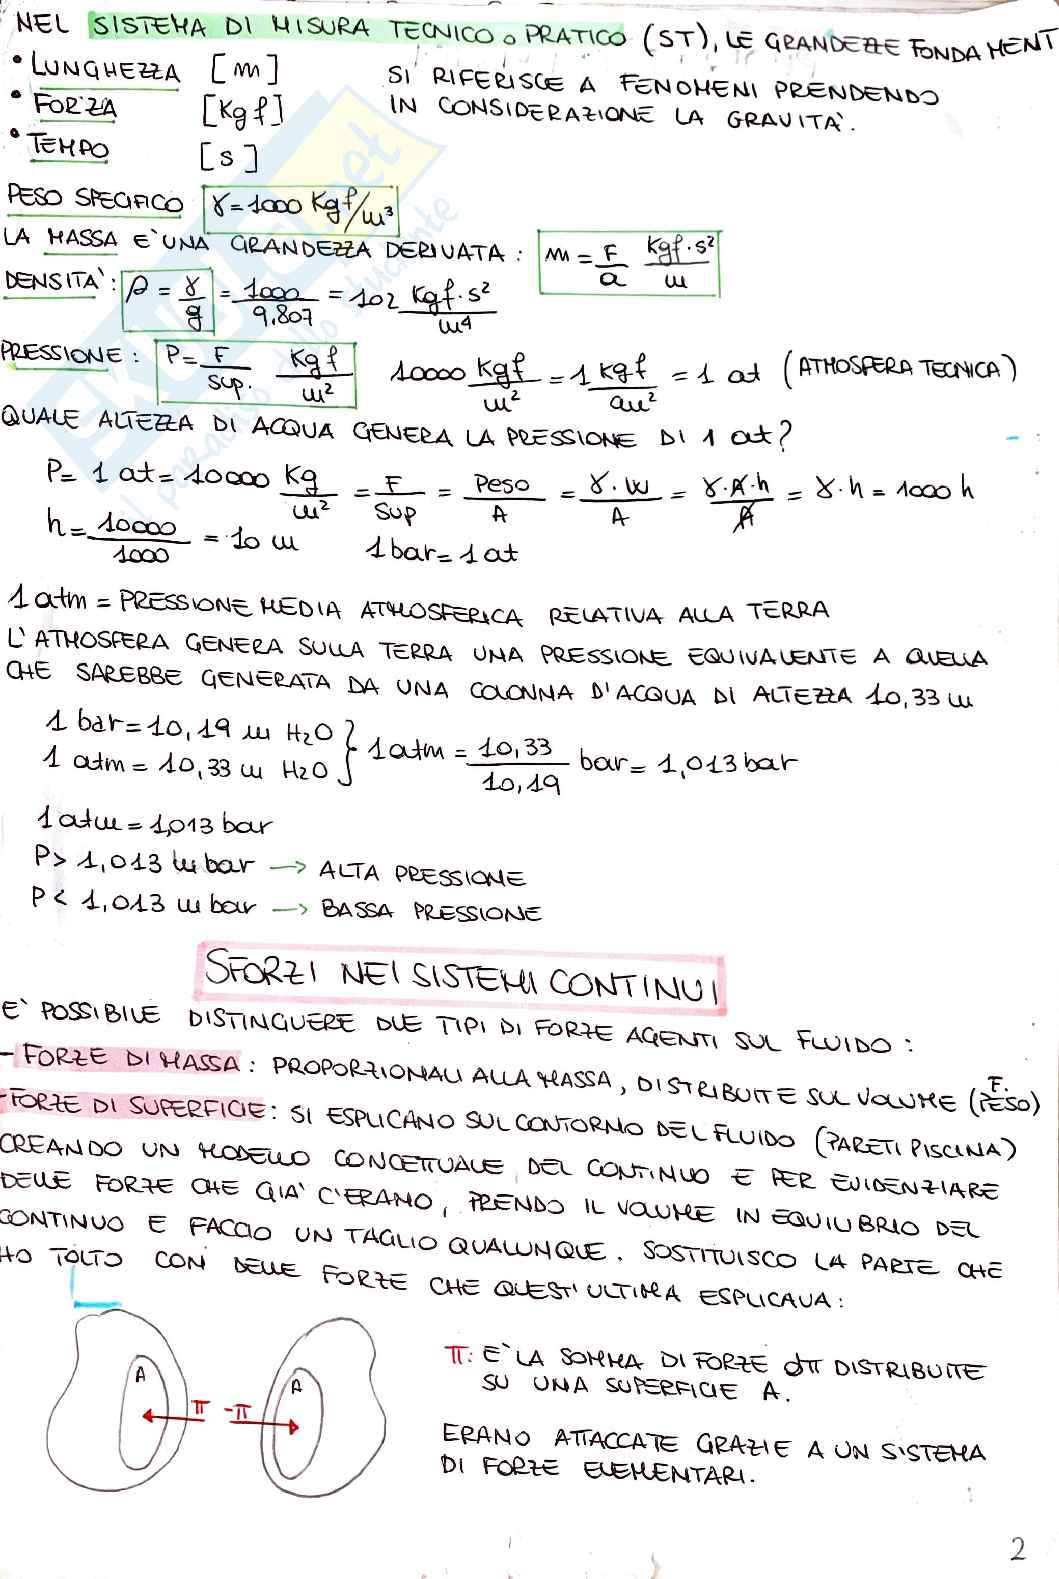 NEL SISTEMA DI MISURA TECNICO o PRATICO (ST), LE GRANDEZZE FONDAMENT
• LUNGHEZZA [m] SI RIFERISCE A FENOMENI PRENDENDO
• FORZA [Kgf] IN CONSIDERAZIONE LA GRAVITA'.
• TEMPO [s]
PESO SPECIFICO γ=1000 Kgf/m³
LA MASSA E' UNA GRANDEZZA DERIVATA : m = F/a Kgf·s²/m
DENSITA' : ρ = γ/g = 1000/9.807 = 102 Kgf·s²/m⁴
PRESSIONE : P = F/Sup. Kgf/m² 10000 Kgf/m² = 1 Kgf/cm² = 1 at (ATMOSFERA TECNICA)
QUALE ALTEZZA DI ACQUA GENERA LA PRESSIONE DI 1 at?
P= 1 at = 10000 Kg/m² = F/Sup = Peso/A = γ·W/A = γ·A·h/A = γ·h = 1000 h
h = 10000/1000 = 10 m 1 bar = 1 at
1 atm = PRESSIONE MEDIA ATMOSFERICA RELATIVA ALLA TERRA
L'ATMOSFERA GENERA SULLA TERRA UNA PRESSIONE EQUIVALENTE A QUELLA
CHE SAREBBE GENERATA DA UNA COLONNA D'ACQUA DI ALTEZZA 10,33 m
1 bar = 10,19 m H₂O } 1 atm = 10,33/10,19 bar = 1,013 bar
1 atm = 10,33 m H₂O
1 atm = 1,013 bar
P > 1,013 m bar → ALTA PRESSIONE
P < 1,013 m bar → BASSA PRESSIONE
SFORZI NEI SISTEMI CONTINUI
E' POSSIBILE DISTINGUERE DUE TIPI DI FORZE AGENTI SUL FLUIDO :
- FORZE DI MASSA : PROPORZIONALI ALLA MASSA, DISTRIBUITE SUL VOLUME (F. PESO)
- FORZE DI SUPERFICIE : SI ESPLICANO SUL CONTORNO DEL FLUIDO (PARETI PISCINA)
CREANDO UN MODELLO CONCETTUALE DEL CONTINUO E PER EVIDENZIARE
DELLE FORZE CHE GIA' C'ERANO, PRENDO IL VOLUME IN EQUILIBRIO DEL
CONTINUO E FACCIO UN TAGLIO QUALUNQUE. SOSTITUISCO LA PARTE CHE
HO TOLTO CON DELLE FORZE CHE QUEST'ULTIMA ESPLICAVA :
A π -π A
π : E' LA SOMMA DI FORZE dπ DISTRIBUITE
SU UNA SUPERFICIE A.
ERANO ATTACCATE GRAZIE A UN SISTEMA
DI FORZE ELEMENTARI.
2